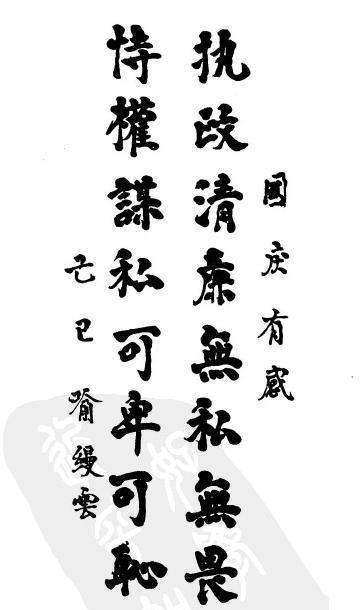 國庆有感
执政清廉無私無畏
恃權謀私可卑可恥
己巳 喻縵雲